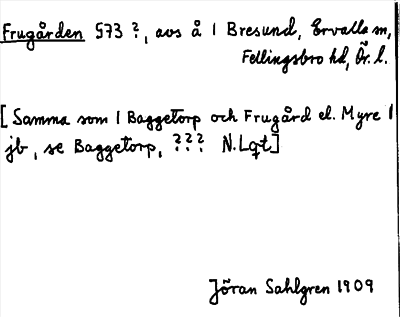 Frugården 573 ?, avs å 1 Bresund, Ervalla sn,
Fellingsbro hd, Ör. l.
[ Samma som 1 Baggetorp och Frugård el. Myre 1
jb, se Baggetorp, ??? N. Lqt ]
Jöran Sahlgren 1909